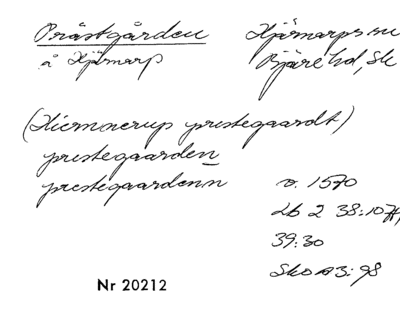 Prästgården Hjärnarps sn
å Hjärnarp Bjäre hd, Sk
(Hiernnerup prestegaardt)
prestegaarden
prestegaardenn o. 1570
Lb 2 38:107ff,
39:30
Sko 3:98
Nr 20212